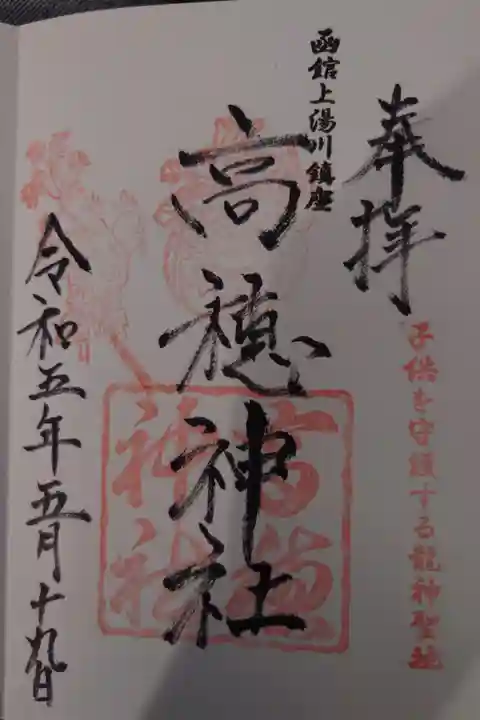 奉拝
子供を守護する龍神聖地
函館上湯川鎮座
高穂神社
高穂
神社
令和五年五月十九日